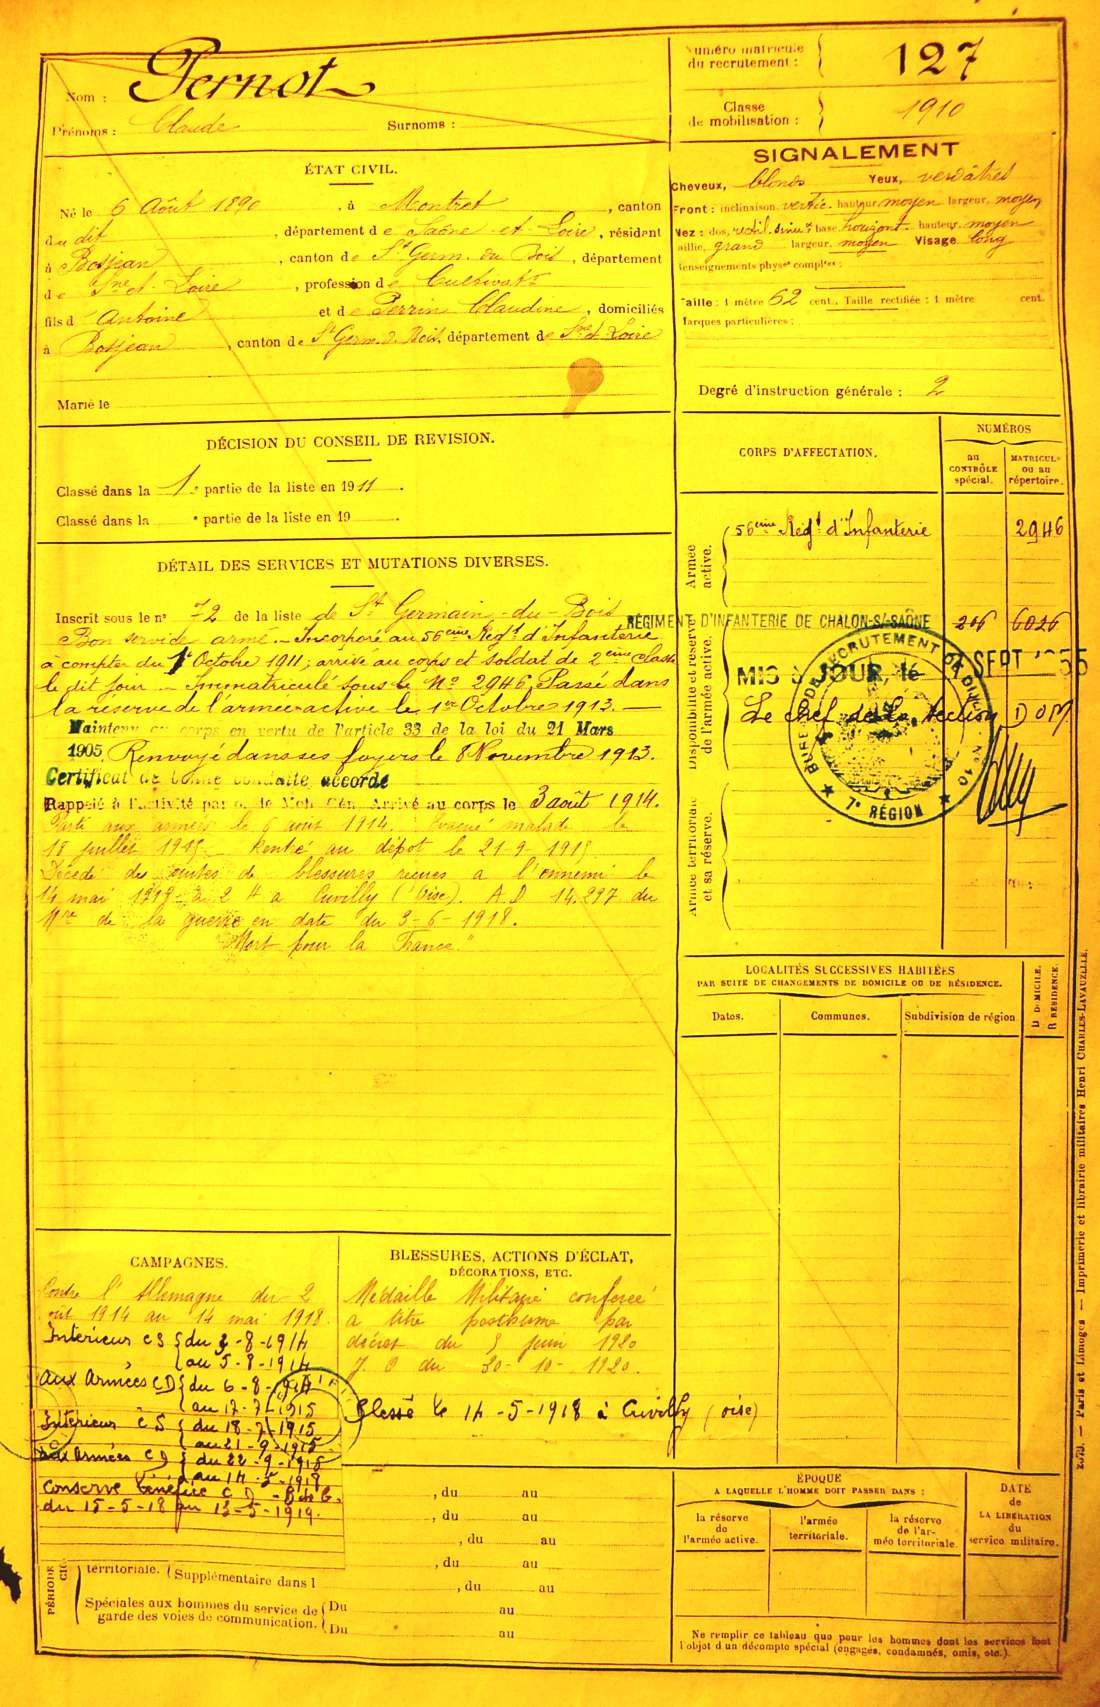 Nom : Pernot
Prénoms : Claude Surnoms :
Numéro matricule
du recrutement : 127
Classe
de mobilisation : 1910
ÉTAT CIVIL.
Né le 6 Août 1890, à Montret, canton
du dit, département de Saône-et-Loire, résident
à Bosjean, canton de St Germ. du Bois, département
de Sne et Loire, profession de Cultivatr
fils d'Antoine et de Perrin Claudine, domiciliés
à Bosjean, canton de St Germ. d. Bois, département de Sne et Loire
Marié le
SIGNALEMENT
Cheveux, blonds Yeux, verdâtres
Front : inclinaison, vertic. hauteur, moyen largeur, moyen
Nez : dos, rectil. sinu. base, horizont. hauteur, moyen
aillie, grand largeur, moyen Visage long
Renseignements physes complres :
Taille : 1 mètre 62 cent., Taille rectifiée : 1 mètre cent.
Marques particulières :
Degré d'instruction générale : 2
DÉCISION DU CONSEIL DE REVISION.
Classé dans la 1re partie de la liste en 1911.
Classé dans la e partie de la liste en 19
DÉTAIL DES SERVICES ET MUTATIONS DIVERSES.
Inscrit sous le n° 72 de la liste de St Germain-du-Bois
Bon service armé. Incorporé au 56ème Régt d'Infanterie
à compter du 1er Octobre 1911, arrivé au corps et soldat de 2ème classe
le dit jour. Immatriculé sous le No 2946. Passé dans
la réserve de l'armée active le 1er Octobre 1913.
Maintenu au corps en vertu de l'article 33 de la loi du 21 Mars
1905. Renvoyé dans ses foyers le 8 Novembre 1913.
Certificat de bonne conduite accordé
Rappelé à l'activité par o. de Mob. Gén. Arrivé au corps le 3 août 1914.
Parti aux armées le 6 août 1914. Evacué malade le
18 juillet 1915. Rentré au dépôt le 21-9-1915
Décédé des suites de blessures reçues à l'ennemi le
14 mai 1918 à 2 H à Cuvilly (Oise). A.D 14.297 du
Mre de la guerre en date du 3-6-1918.
"Mort pour la France"
CORPS D'AFFECTATION.
NUMÉROS
au
CONTRÔLE
spécial.
MATRICULE
ou au
répertoire.
Armée
active.
56ème Régt d'Infanterie 2946
Disponibilité et réserve
de l'armée active.
RÉGIMENT D'INFANTERIE DE CHALON-S/-SAÔNE 6026
MIS à JOUR, le SEPT
Le Chef de la Section DOM
BUREAU DE RECRUTEMENT DE DIJON N° 10
7e RÉGION
Armée territoriale
et sa réserve.
LOCALITÉS SUCCESSIVES HABITÉES
PAR SUITE DE CHANGEMENTS DE DOMICILE OU DE RÉSIDENCE.
Dates. Communes. Subdivision de région. D DOMICILE. R RÉSIDENCE.
CAMPAGNES.
Contre l'Allemagne du 2
août 1914 au 14 mai 1918.
Intérieur CS { du 2-8-1914
au 5-8-1914
Aux Armées CD { du 6-8-1914
au 17-7-1915
Intérieur CS { du 18-7-1915
au 21-9-1915
aux Armées CD { du 22-9-1915
au 14-5-1918
Conserve bénéfice CD
du 15-5-18 au 13-5-1919.
BLESSURES, ACTIONS D'ÉCLAT,
DÉCORATIONS, ETC.
Médaille Militaire conférée
à titre posthume par
décret du 5 juin 1920
J.O du 30-10-1920.
Blessé le 14-5-1918 à Cuvilly (oise)
, du au
, du au
, du au
, du au
, du au
territoriale. Supplémentaire dans l
Spéciales aux hommes du service de
garde des voies de communication.
Du au
Du au
ÉPOQUE
A LAQUELLE L'HOMME DOIT PASSER DANS :
la réserve
de
l'armée active.
l'armée
territoriale.
la réserve
de l'ar-
mée territoriale.
DATE
de
LA LIBÉRATION
du
service militaire.
Ne remplir ce tableau que pour les hommes dont les services font
l'objet d'un décompte spécial (engagés, condamnés, omis, etc.).
Paris et Limoges. — Imprimerie et librairie militaires Henri CHARLES-LAVAUZELLE.